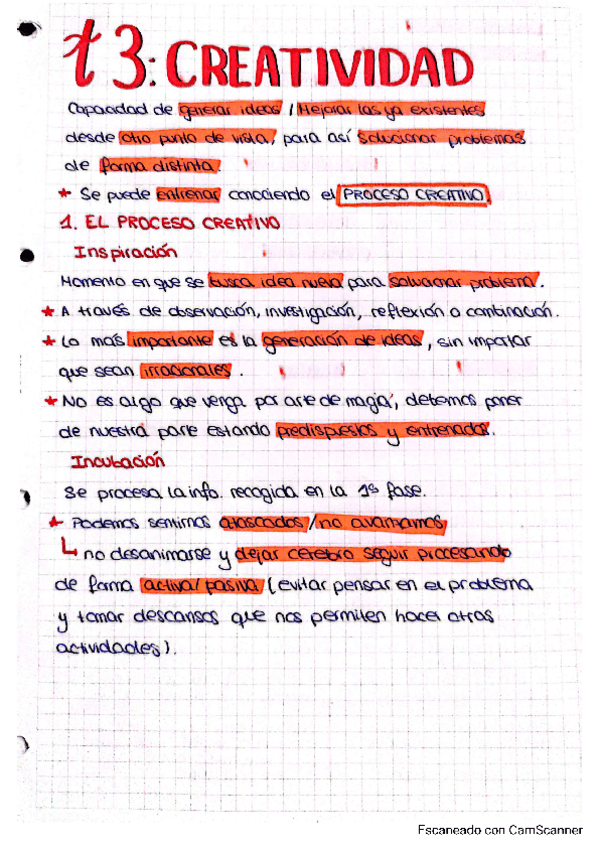 t3: CREATIVIDAD
Capacidad de generar ideas / Mejorar las ya existentes
desde otro punto de vista, para así solucionar problemas
de forma distinta.
* Se puede entrenar conociendo el PROCESO CREATIVO.
1. EL PROCESO CREATIVO
Inspiración
Momento en que se busca idea nueva para solucionar problema.
* A través de observación, investigación, reflexión o combinación.
* Lo más importante es la generación de ideas, sin importar
que sean irracionales.
* No es algo que venga por arte de magia, debemos poner
de nuestra parte estando predispuestos y entrenados.
Incubación
Se procesa la info. recogida en la 1ª fase.
* Podemos sentirnos atascados / no avanzamos
↳ no desanimarse y dejar cerebro seguir procesando
de forma activa/pasiva (evitar pensar en el problema
y tomar descansos que nos permiten hacer otras
actividades).
Escaneado con CamScanner